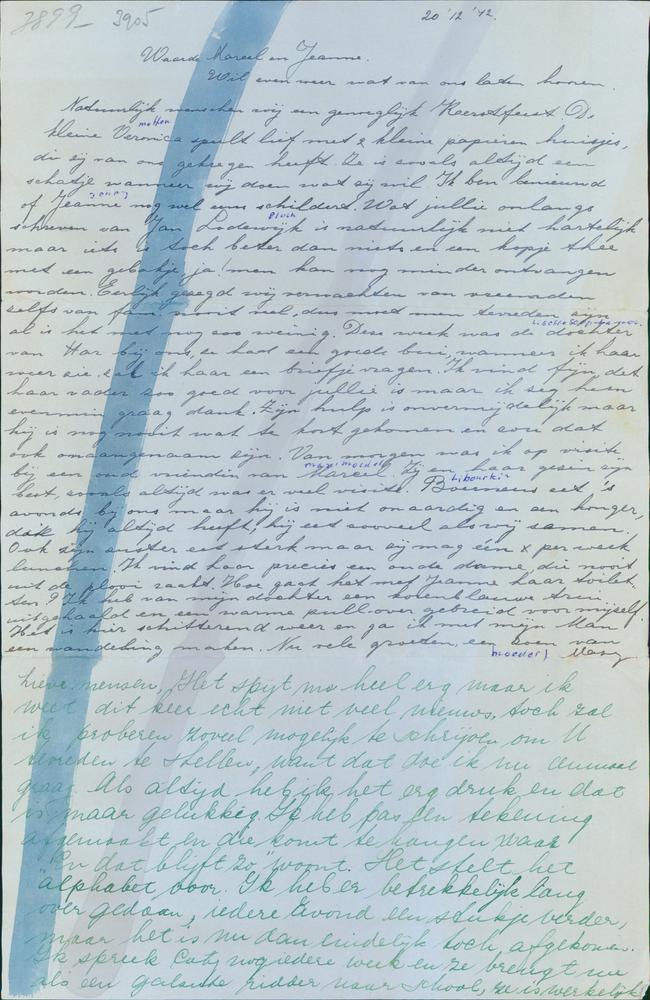 7899 3905
20 '12 '42.
Waarde Marcel en Jeanne.
Wil even weer wat van ons laten hooren.
Natuurlijk wenschen wij een genoeglijk Kerstfeest. De
motten
kleine Veronica speelt lief met 2 kleine papieren huisjes,
die zij van ons gekregen heeft. Ze is zooals altijd een
schatje wanneer wij doen wat zij wil. Ik ben benieuwd
of Jeanne nog wel eens schildert. Wat jullie onlangs
schreven van Jan Lodewijk is natuurlijk niet hartelijk
maar iets is toch beter dan niets en een kopje thee
met een gebakje, ja! men kan nog minder ontvangen
worden. Eerlijk gezegd wij verwachten van vreemden
zelfs van fam. nooit veel, dus moet men tevreden zijn
al is het met nog zoo weinig. Deze week was de dochter
van Har bij ons, ze had een goede bui, wanneer ik haar
weer zie zal ik haar een briefje vragen. Ik vind fijn, dat
haar vader zoo goed voor jullie is maar ik zeg hem
evenmin graag dank. Zijn hulp is onvermijdelijk maar
hij is nog nooit wat te kort gekomen en zou dat
ook onaangenaam zijn. Van morgen was ik op visite
bij een oud vriendin van Marcel. Zij en haar gezin zijn
best, zooals altijd was er veel visite. eet 's
avonds bij ons maar hij is niet onaardig en een honger,
dat hij altijd heeft, hij eet zooveel als wij samen.
Ook zijn zuster eet sterk maar zij mag één x per week
lunchen. Ik vind haar precies een oude dame, die nooit
uit de plooi raakt. Hoe gaat het met Jeanne haar toilet-
ten? Ik heb van mijn dochter een korenblauwe trui
uitgehaald en een warme pullover gebreid voor mijzelf.
Het is hier schitterend weer en ga ik met mijn Man
een wandeling maken. Nu vele groeten, een zoen van
moeder) Mary
Lieve mensen, Het spijt me heel erg maar ik
weet dit keer echt niet veel nieuws, toch zal
ik proberen zoveel mogelijk te schrijven om U
tevreden te stellen, want dat doe ik nu eenmaal
graag. Als altijd heb ik het erg druk en dat
is maar gelukkig. Ik heb pas een tekening
afgemaakt en die komt te hangen waar
"En dat blijft zo" woont. Het stelt het
alphabet voor. Ik heb er betrekkelijk lang
over gedaan, iedere avond een stukje verder,
maar het is nu dan eindelijk toch afgekomen.
Ik spreek Caty nog iedere week en ze brengt me
als een galante ridder naar school, ze is werkelijk